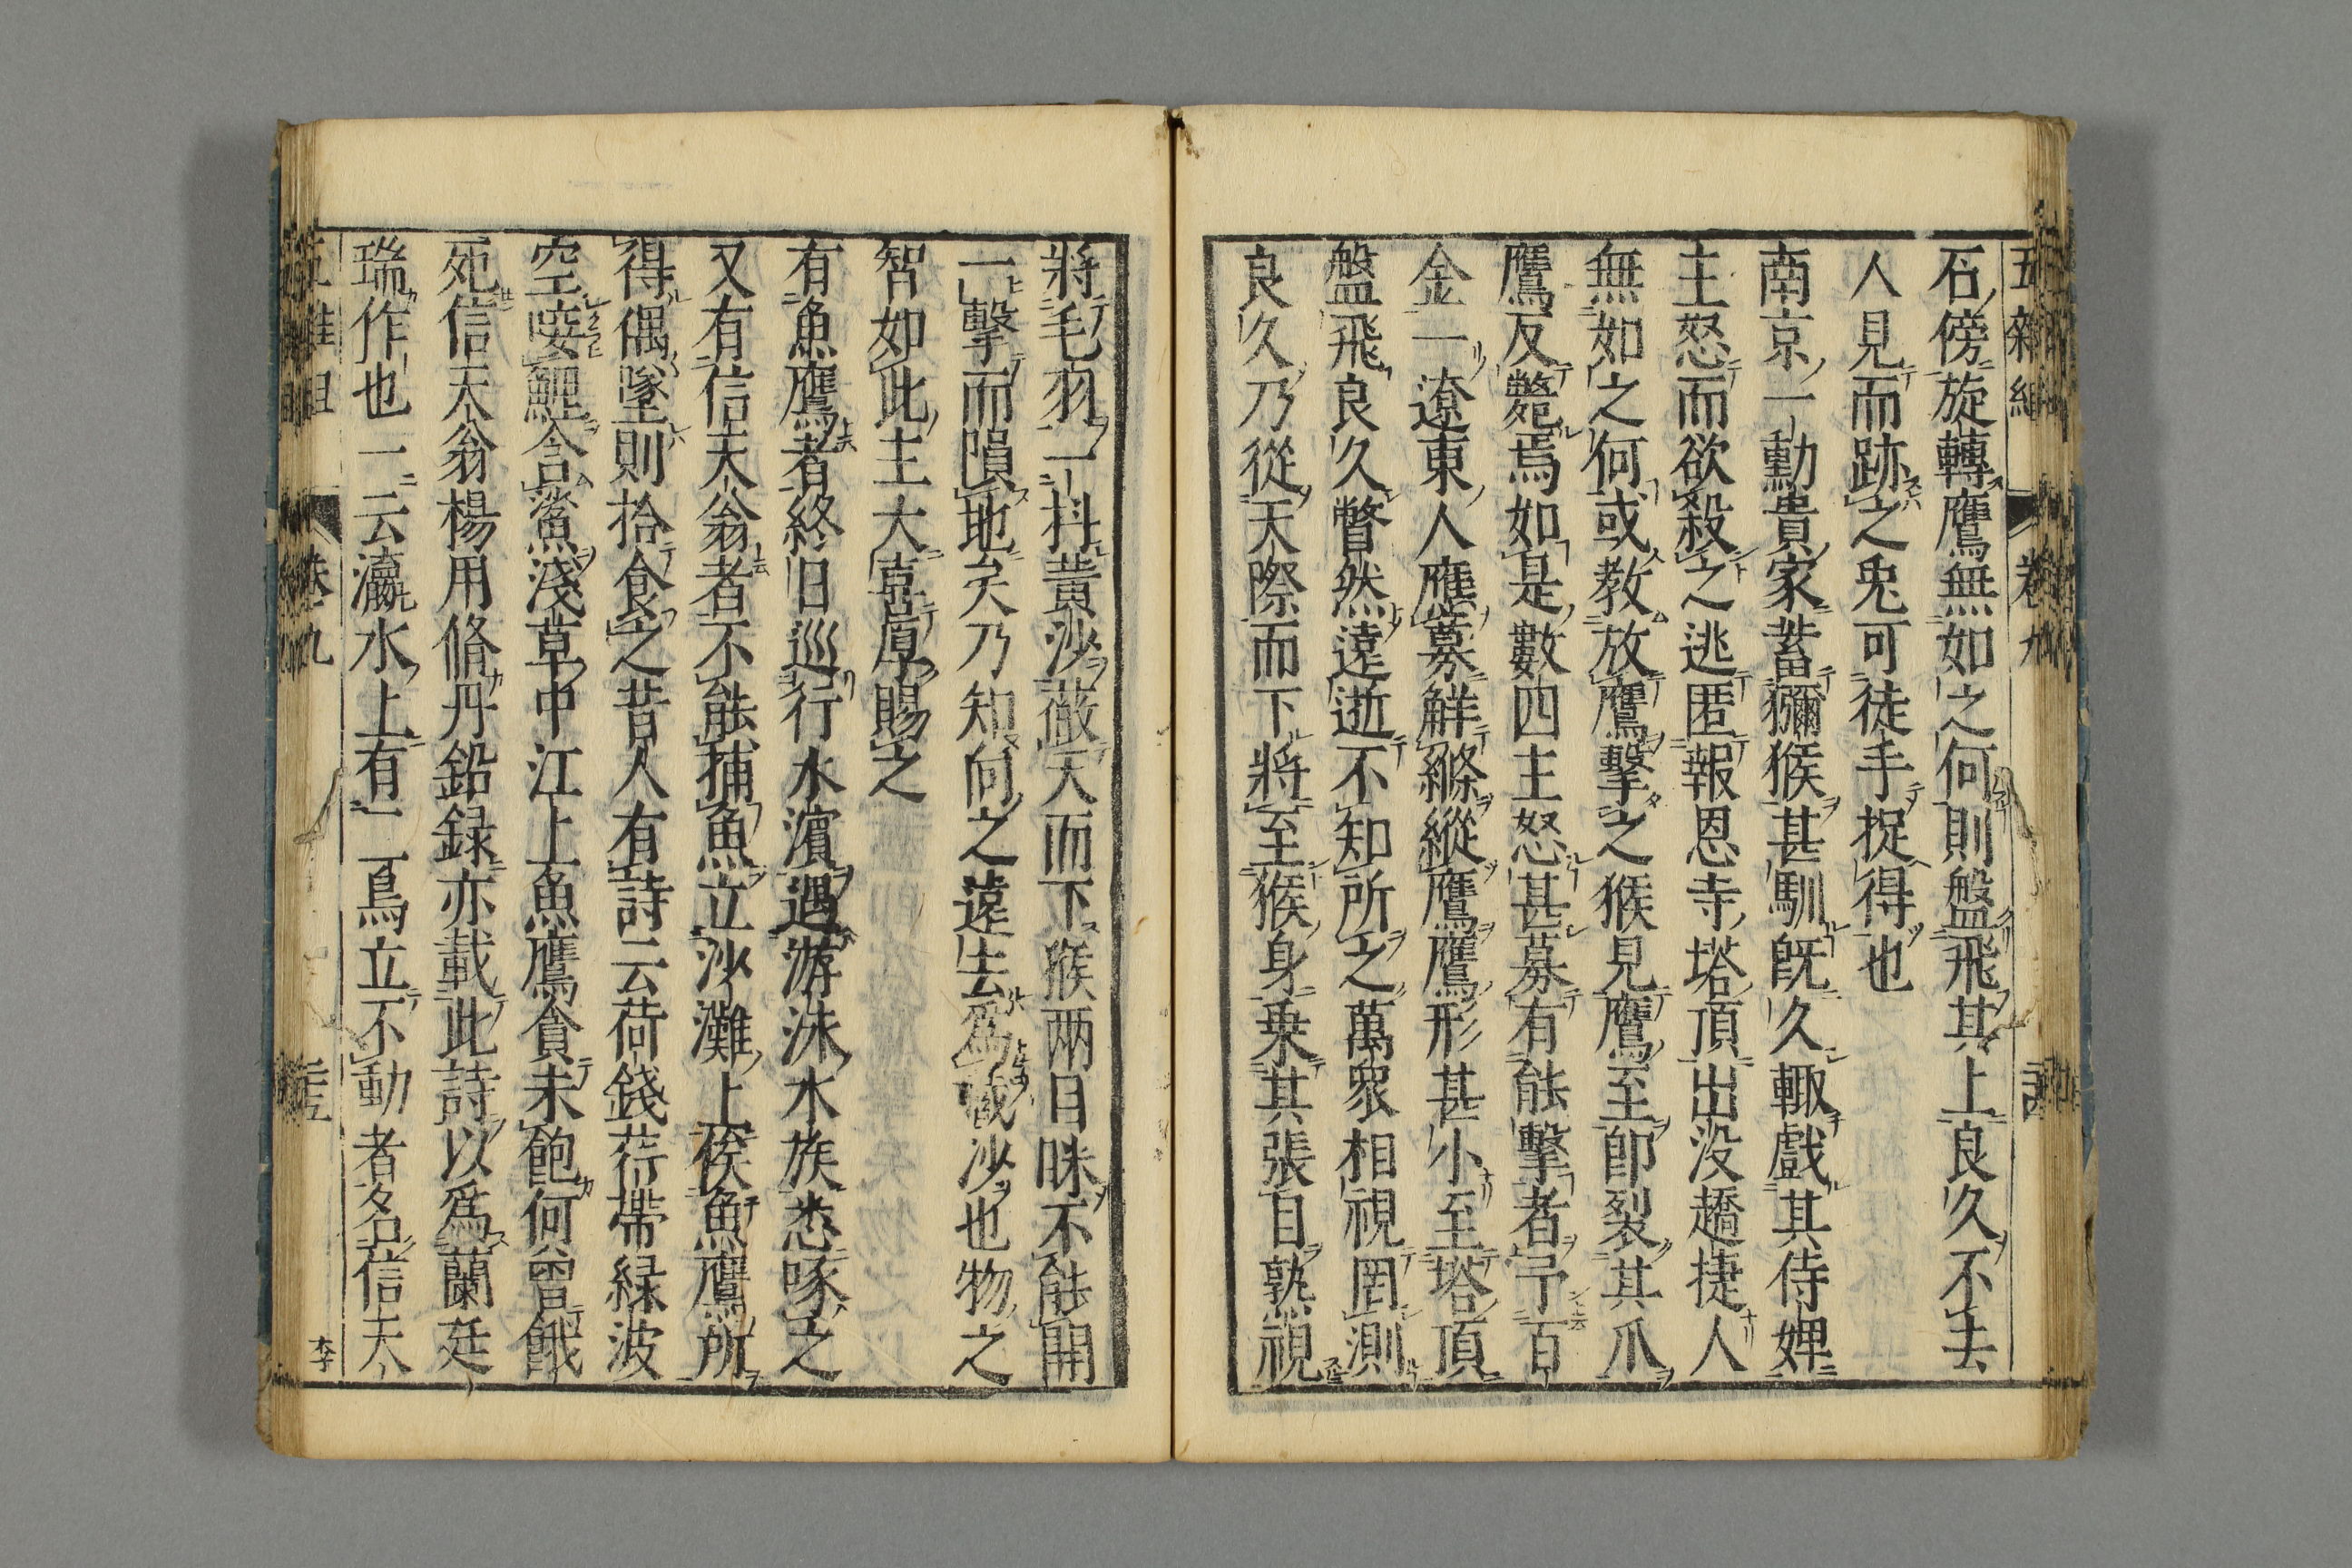 五雜組 卷九
石傍旋轉鷹無如之何則盤飛其上良久不去
人見而跡之兎可徒手捉得也
南京一勳貴家蓄獮猴甚馴旣久輙戲其侍婢
主怒而欲殺之逃匿報恩寺塔頂出没趫捷人
無如之何或教放鷹擊之猴見鷹至卽裂其爪
鷹反斃焉如是數四主怒甚募有能擊者予百
金一遼東人應募鮮縧縱鷹鷹形甚小至塔頂
盤飛良久瞥然遠逝不知所之萬衆相視罔測
良久乃從天際而下將至猴身乗其張目熟視
將毛羽一抖黄沙蔽天而下猴两目眯不能開
一擊而隕地矣乃知向之遠去爲藏沙也物之
智如此主大喜厚賜之
有魚鷹者終日巡行水濵遇游泳水族悉啄之
又有信天翁者不能捕魚立沙灘上俟魚鷹所
得偶墜則拾食之昔人有詩云荷錢荇帶緑波
空唼鯉含鯊淺草中江上魚鷹貪未飽何曾餓
死信天翁楊用脩丹鉛録亦載此詩以爲蘭廷
瑞作也一云瀛水上有一鳥立不動者名信天
卷九
李